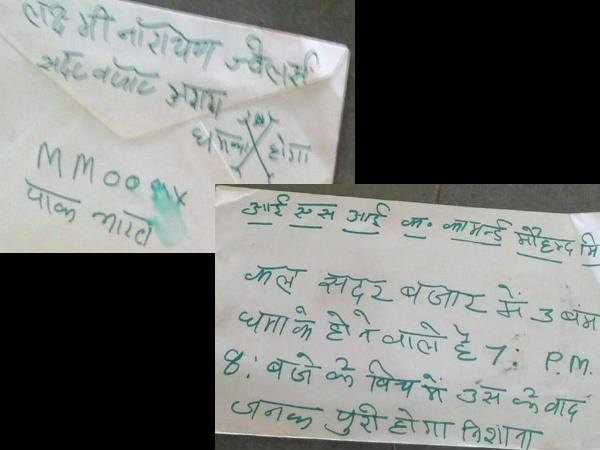 लक्ष्मी नारायण ज्वैलर्स
सदर बजार
धमाका होगा
MM00
पाक भारत
आई एस आई क. कामर्न्ड
कल सदर बजार में 3 बंम
धमाके होने वाले है 7: P.M.
8: बजे के बिच में उस के बाद
जनक पुरी होगा निशाना